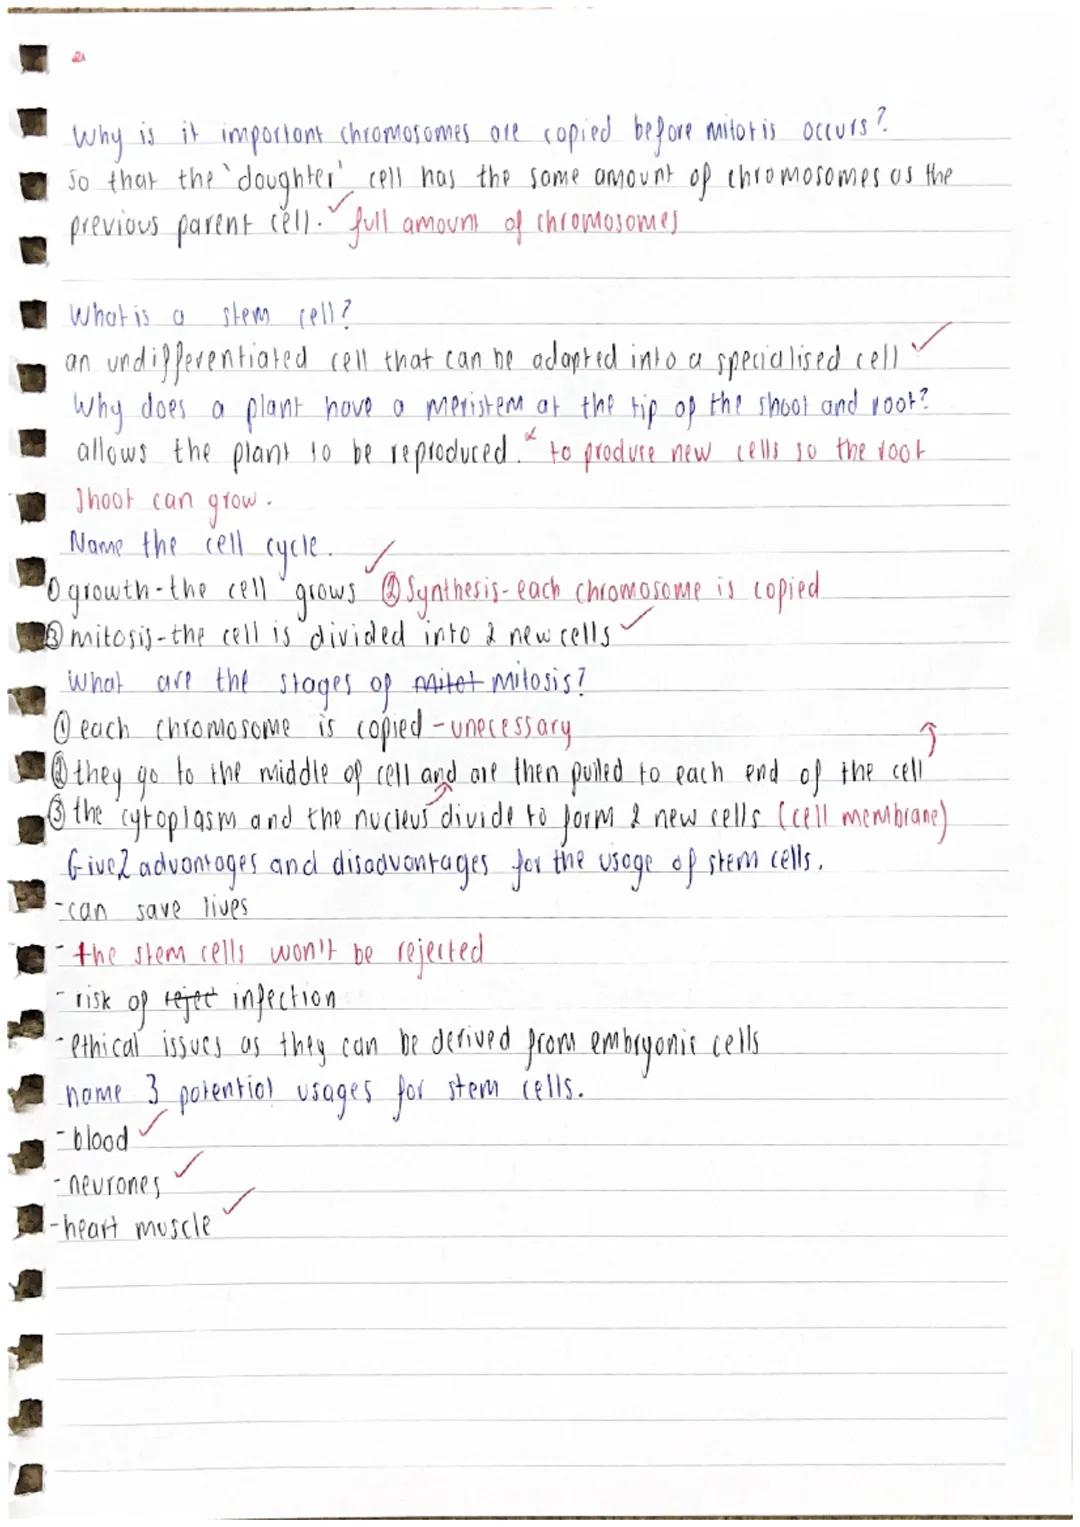 Why is it important chromosomes are copied before mitotis occurs?
So that the 'daughter' cell has the same amount of chromosomes as the
previous parent cell. ✓ full amount of chromosomes
What is a stem cell?
an undifferentiated cell that can be adapted into a specialised cell ✓
Why does a plant have a meristem at the tip of the shoot and root?
allows the plant to be reproduced. x to produce new cells so the root
shoot can grow.
Name the cell cycle.
① growth - the cell grows ✓ ② Synthesis - each chromosome is copied
③ mitosis - the cell is divided into 2 new cells ✓
What are the stages of mitot mitosis?
① each chromosome is copied - unecessary
② they go to the middle of cell and are then pulled to each end of the cell ↑
③ the cytoplasm and the nucleus divide to form 2 new cells (cell membrane)
Give 2 advantages and disadvantages for the usage of stem cells.
- can save lives
- the stem cells won't be rejected
- risk of reject infection
- ethical issues as they can be derived from embryonic cells
name 3 potential usages for stem cells.
- blood ✓
- neurones ✓
- heart muscle ✓